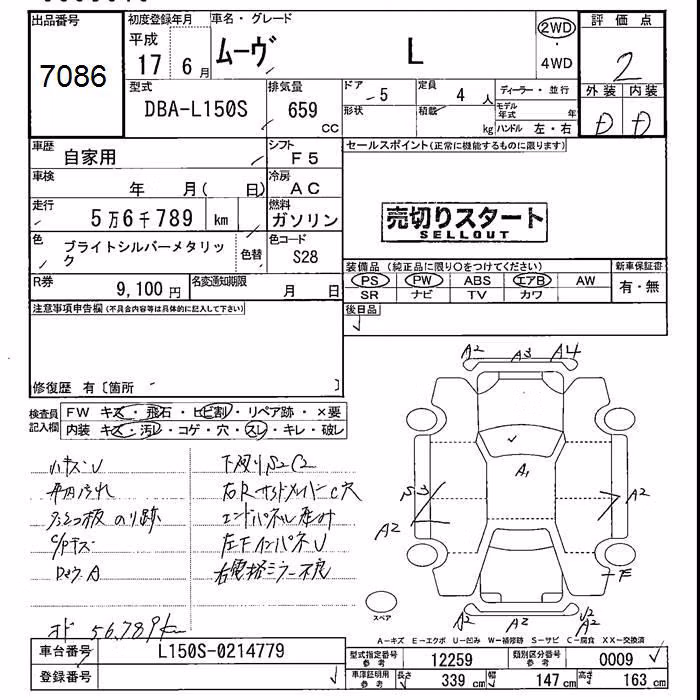 出品番号
7086
初度登録年月
平成
17 6月
車名・グレード
ムーヴ L
2WD
・
4WD
評価点
2
外装 内装
D D
型式
DBA-L150S
排気量
659
cc
ドア
5
形状
定員
4 人
積載
kg
ディーラー・並行
モデル年式 年
ハンドル 左・右
車歴
自家用
シフト
F5
車検
年 月( 日)
冷房
AC
走行
5万6千789 km
燃料
ガソリン
色
ブライトシルバーメタリック
色替
色コード
S28
R券
9,100円
名変通知期限
月 日
セールスポイント(正常に機能するものに限ります)
売切りスタート
SELLOUT
装備品 (純正品に限り○をつけてください)
PS PW ABS エアB AW
SR ナビ TV カワ
新車保証書
有・無
後日品
注意事項申告欄(不具合内容等は具体的に記入して下さい)
修復歴 有〔箇所 〕
検査員
記入欄
FW キズ・飛石・ヒビ割・リペア跡・×要
内装 キズ・汚レ・コゲ・穴・スレ・キレ・破レ
ハキズU
下廻りS2C2
内汚れ
右Rサイドメンバー C穴
のり跡
エンドパネル
左FインパネU
右電格ミラー不良
オド 56,789km
A2 A3 A4
A1
S3
A2
A2
A2 A2 U2
A2
スペア
A-キズ E-エクボ U-凹み W-補修跡 S-サビ C-腐食 XX-交換済
車台番号
L150S-0214779
登録番号
型式指定番号
参考
12259
類別区分番号
参考
0009
車検証明用
参考
長さ 339 cm 幅 147 cm 高さ 163 cm